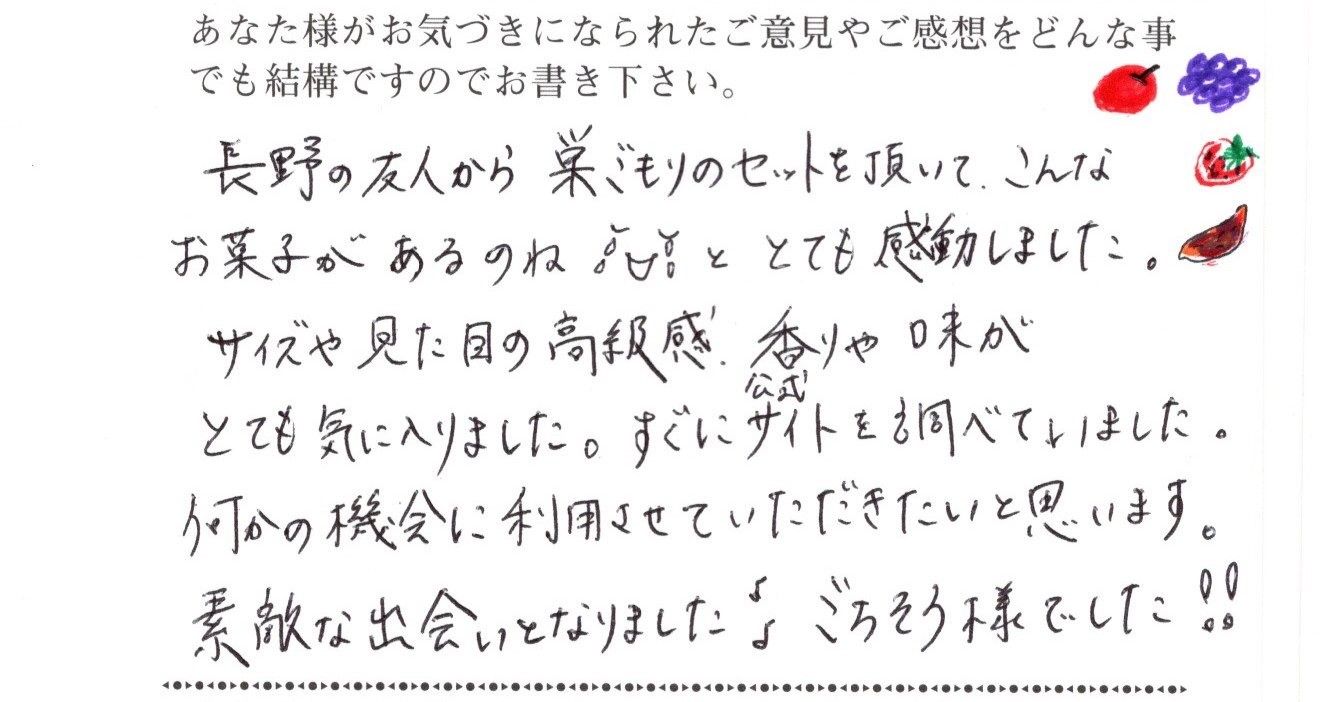 あなた様がお気づきになられたご意見やご感想をどんな事
でも結構ですのでお書き下さい。
長野の友人から巣ごもりのセットを頂いて、こんな
お菓子があるのねととても感動しました。
サイズや見た目の高級感、香りや味が
公式
とても気に入りました。すぐにサイトを調べていました。
何かの機会に利用させていただきたいと思います。
素敵な出会いとなりました♪♪ごちそう様でした!!